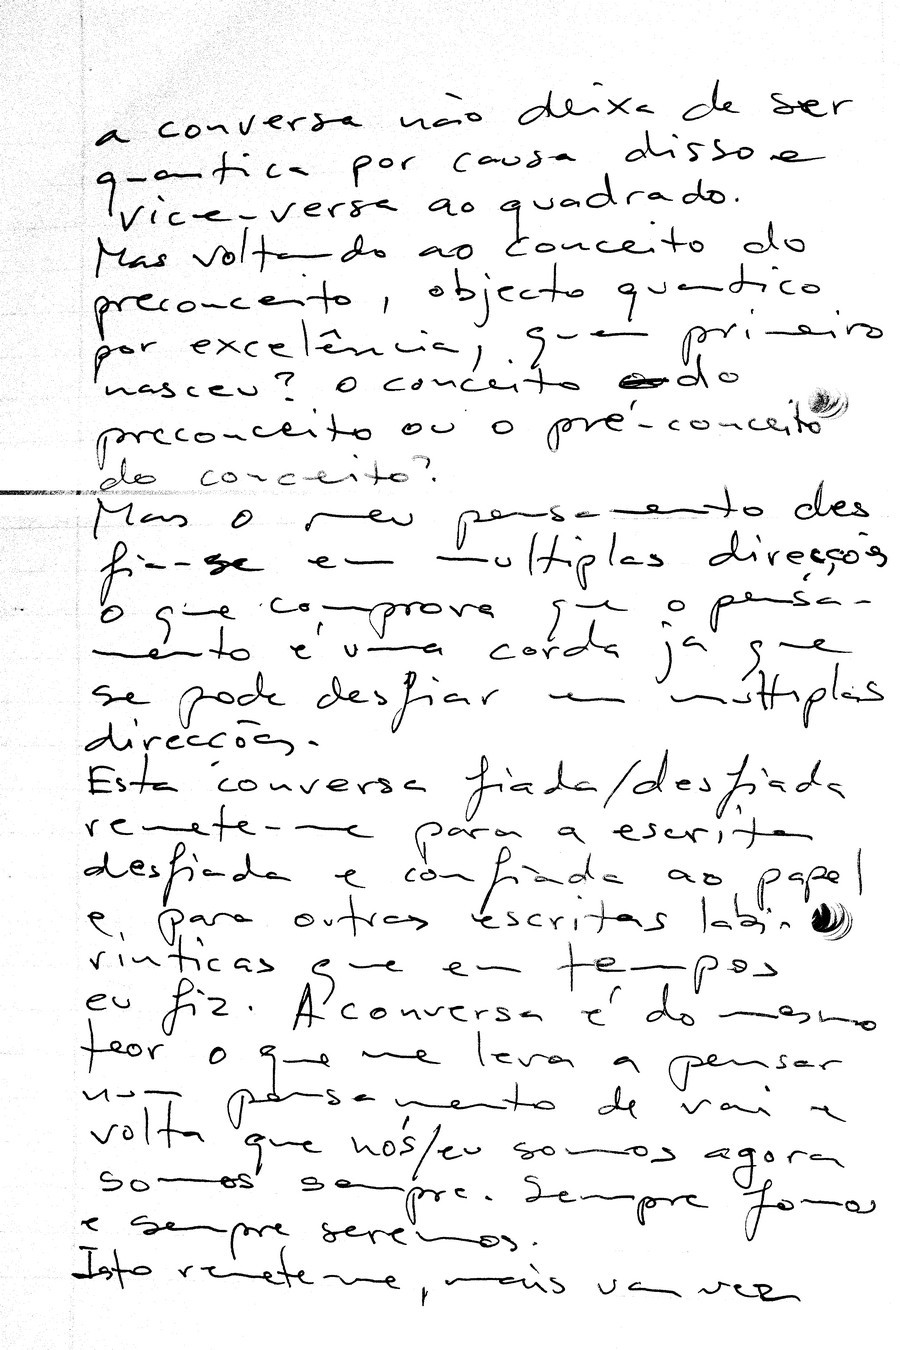 a conversa não deixa de ser
quantica por causa disso e
vice-versa ao quadrado.
Mas voltando ao conceito do
preconceito, objecto quantico
por excelência, quem primeiro
nasceu? o conceito do
preconceito ou o pré-conceito
do conceito?
Mas o meu pensamento des
fia-se em multiplas direcções
o que comprova que o pensa-
mento é uma corda já que
se pode desfiar em multiplas
direcções.
Esta conversa fiada/desfiada
remete-me para a escrita
desfiada e confiada ao papel
e para outras escritas labi-
rinticas que em tempos
eu fiz. A conversa é do mesmo
teor o que me leva a pensar
num pensamento de vai e
volta que nós/eu somos agora
somos sempre. Sempre fomos
e sempre seremos.
Isto remete-me, mais uma vez